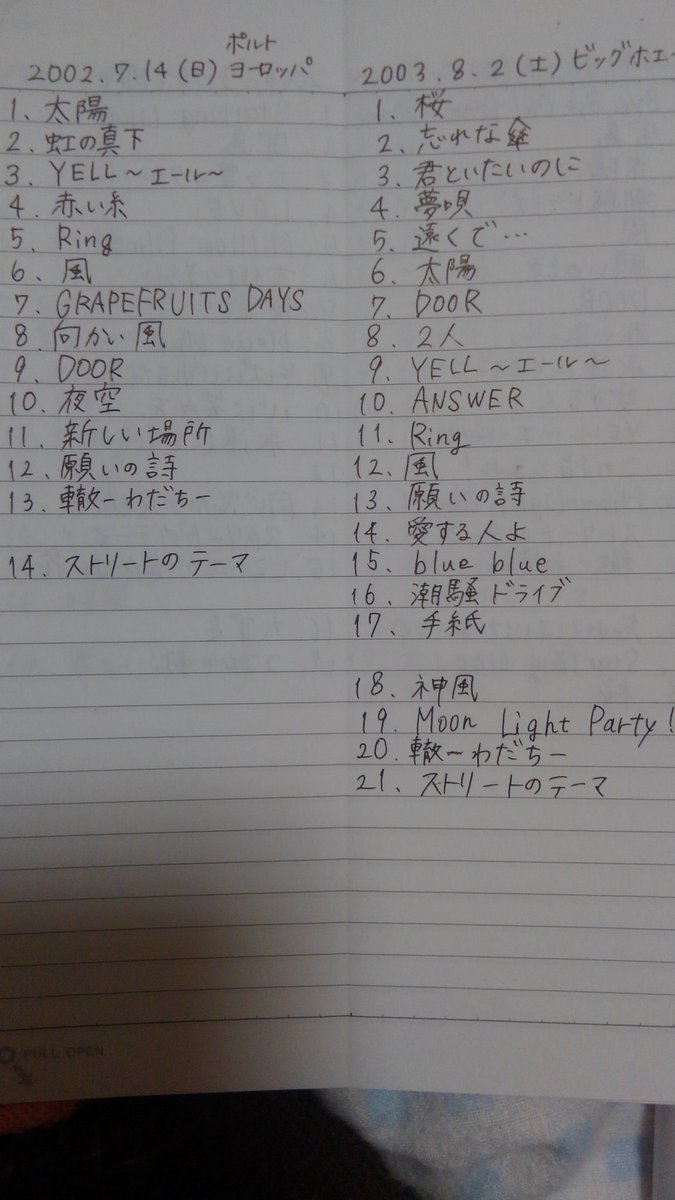 2002.7.14(日) ポルト ヨーロッパ
1. 太陽
2. 虹の真下
3. YELL～エール～
4. 赤い糸
5. Ring
6. 風
7. GRAPEFRUITS DAYS
8. 向かい風
9. DOOR
10. 夜空
11. 新しい場所
12. 願いの詩
13. 轍ーわだちー
14. ストリートのテーマ
2003.8.2(土)ビッグホエー
1. 桜
2. 忘れな傘
3. 君といたいのに
4. 夢唄
5. 遠くで…
6. 太陽
7. DOOR
8. 2人
9. YELL～エール～
10. ANSWER
11. Ring
12. 風
13. 願いの詩
14. 愛する人よ
15. blue blue
16. 潮騒ドライブ
17. 手紙
18. 神風
19. Moon Light Party!
20. 轍ーわだちー
21. ストリートのテーマ
PULL OPEN